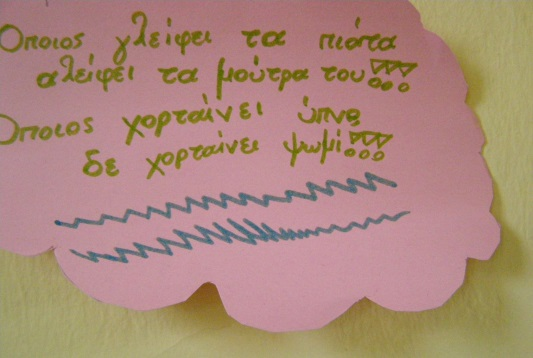 Όποιος γλείφει τα πιάτα
αλείφει τα μούτρα του!!!
Όποιος χορταίνει ύπνο
δε χορταίνει ψωμί!!!